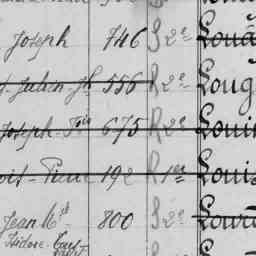 Joseph 746 S 2e Loua
f. Julien-Jh 556 R 2e Loug
Joseph-Fois 675 R 2e Loui
is-Pierre 192 R 1er Loui
Jean Mie 800 S 2e Lour
Isidore-